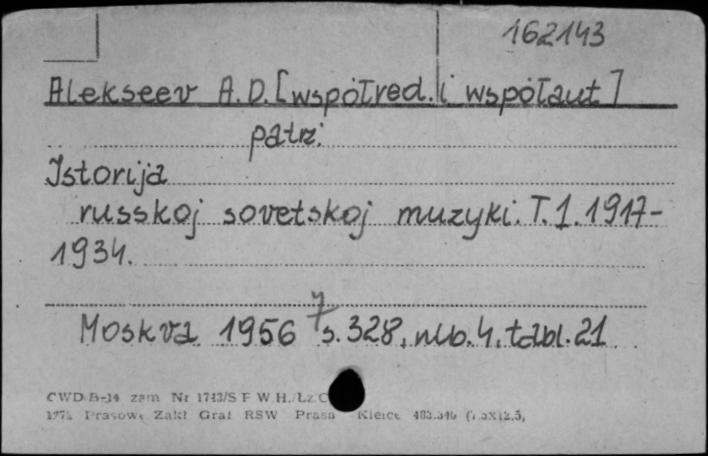 162143
Alekseev A.D. [współred. i współaut]
patrz:
Istorija
russkoj sovetskoj muzyki. T.1. 1917-
1934.
Moskva 1956 s. 328, nlb. 4, tabl. 21
CWD B-14 zam Nr 1743/S F W.H./Łz.
Prasowe Zakł Graf RSW Prasa Kielce